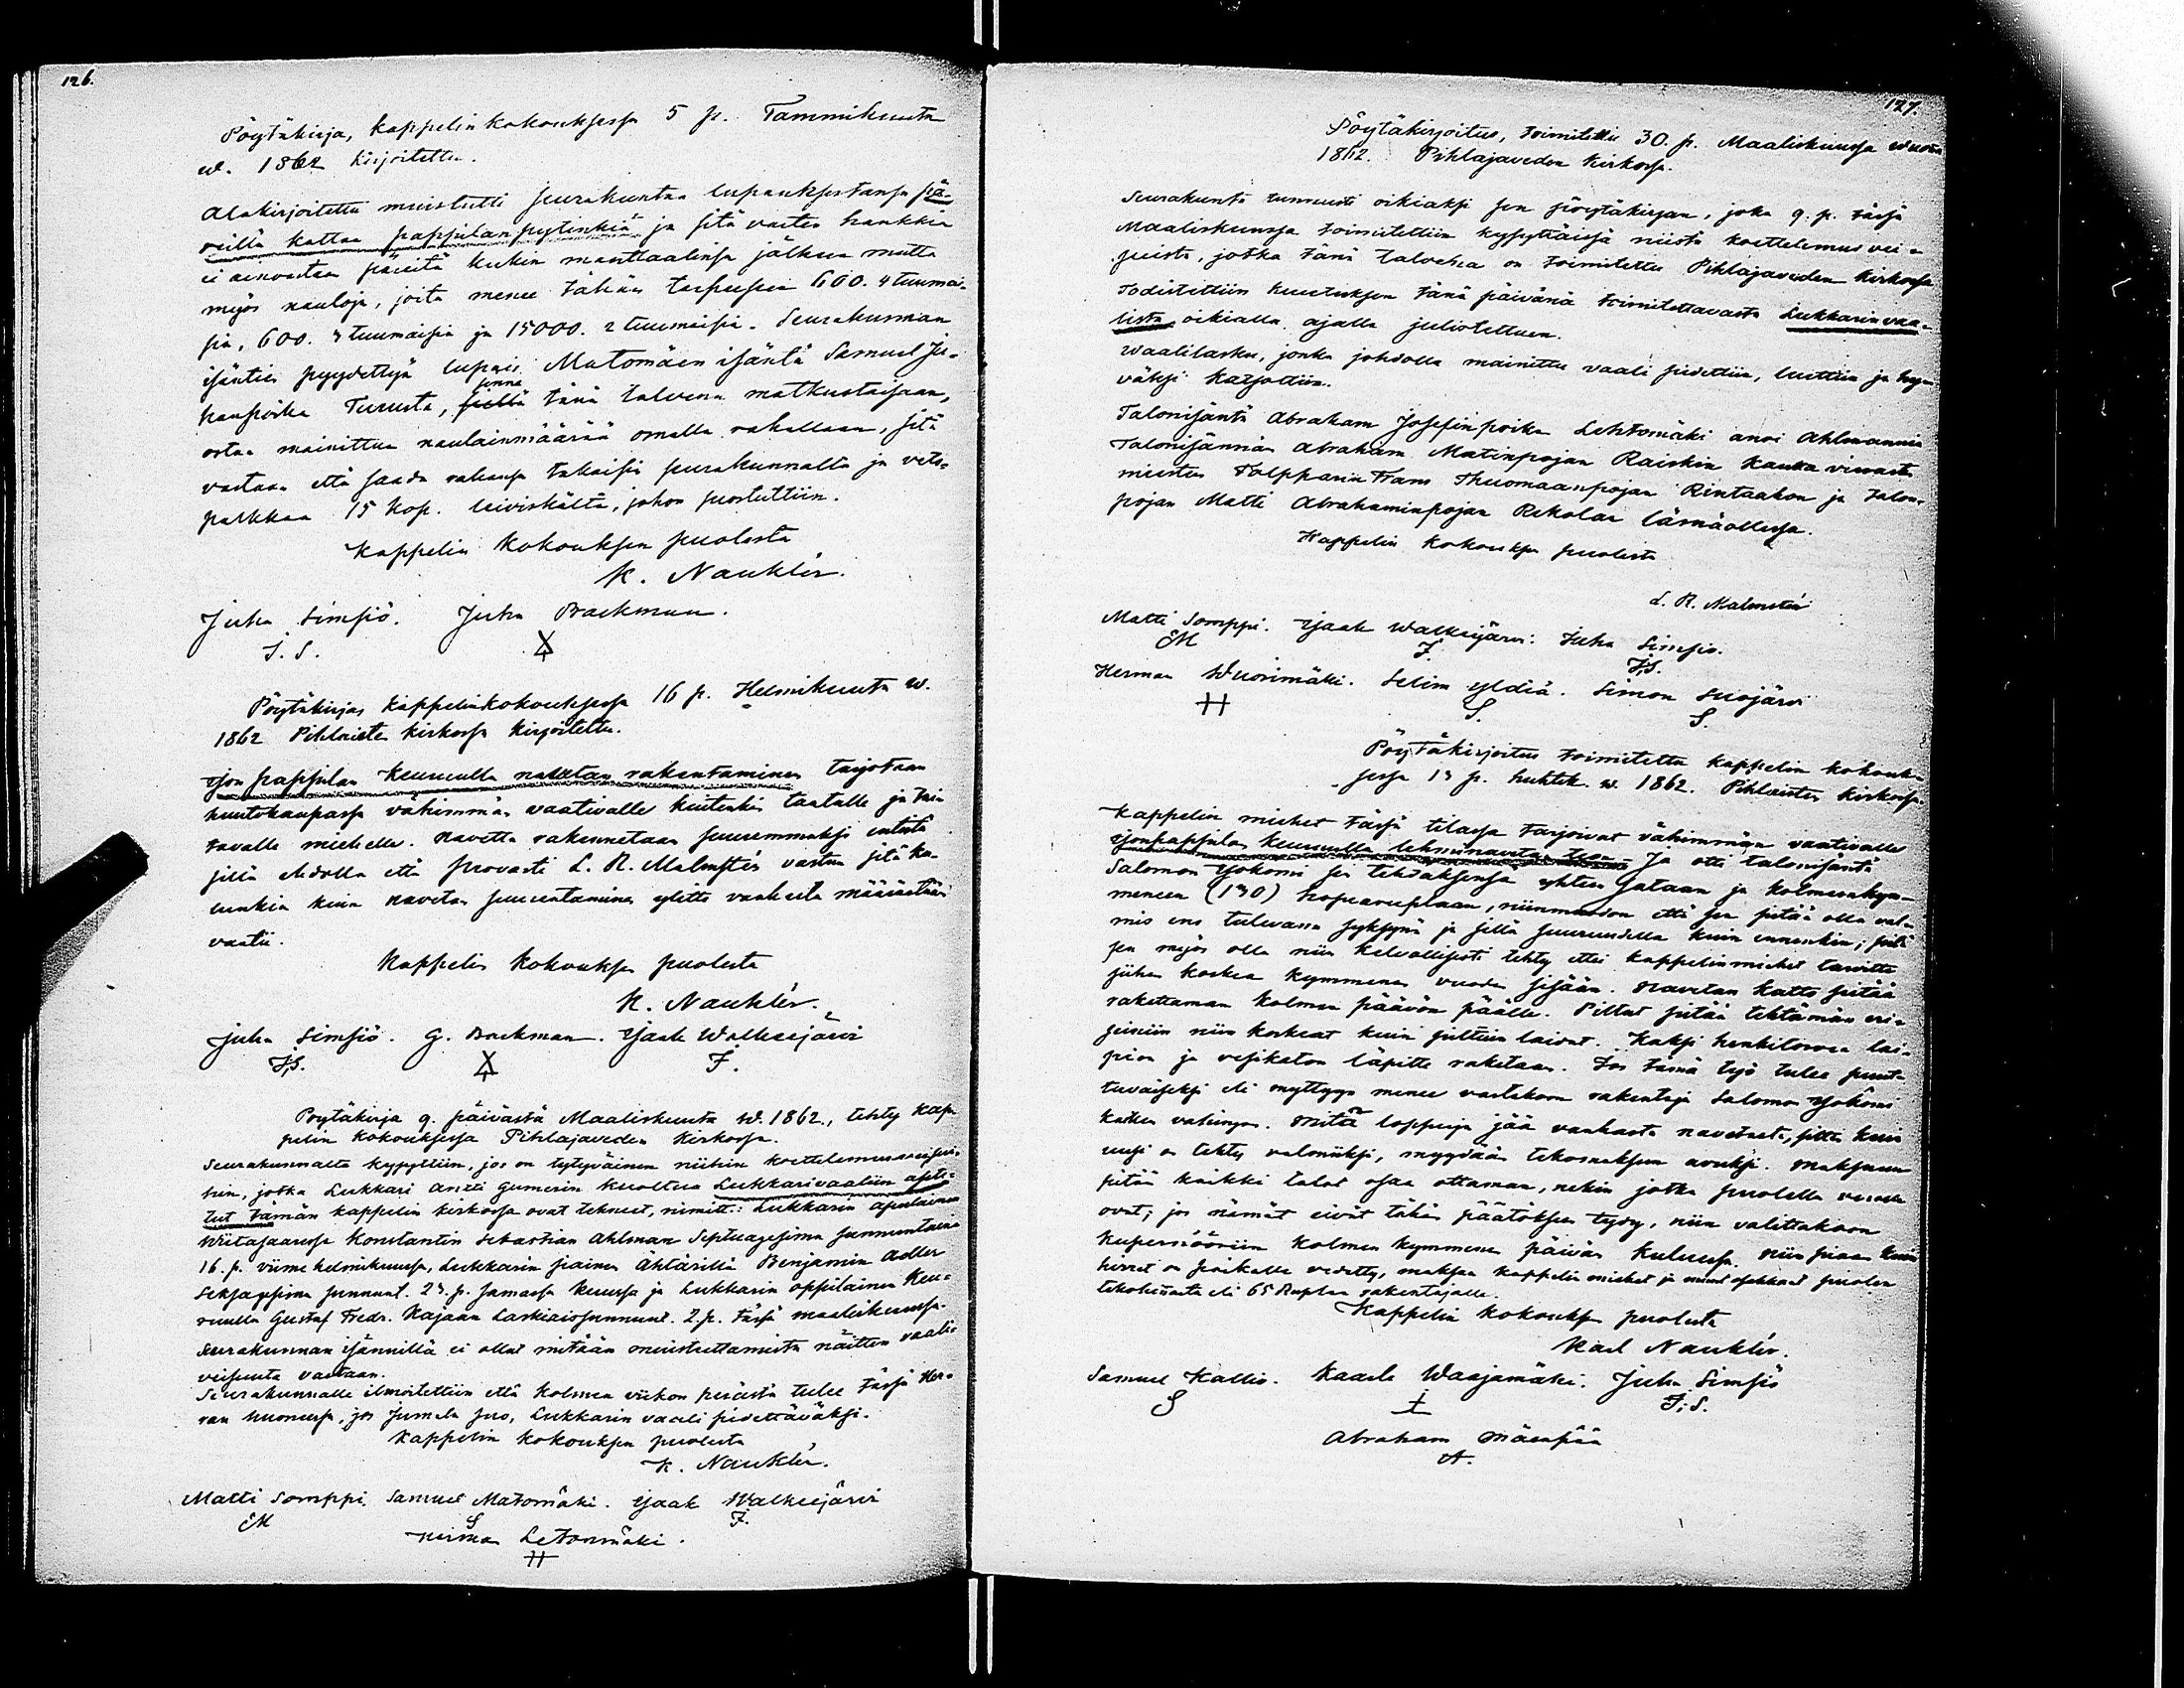 126.
Pöytäkirja, kappelin kokouksessa 5 p. Tammikuuta
w. 1862 kirjoitettu.
Alakirjoitettu muistutti seurakuntaa lupauksestansa pä-
reillä kattaa pappilan pytinkiä ja sitä varten hankkia
ei ainoastaan päreitä kukin manttaalinsa jälkeen mutta
myös nauloja, joita menee tähän tarpeesen 600. 4 tuumai-
sia, 600. 3 tuumaisia ja 15000. 2 tuumaisia. Seurakunnan
isäntien pyydettyä lupasi Matomäen isäntä Samuel Ju-
hanpoika Turusta, siellä sinne tänä talvena matkustaissaan,
ostaa mainittua naulainmäärää omalla rahallaan, sitä
vastaan että saada rahansa takaisin seurakunnalta ja veto-
palkkaa 15 kop. leiviskältä, johon suostuttiin.
Kappelin kokouksen puolesta
K. Nauklér.
Juha Simsiö. Juha Backman.
J. S.
Pöytäkirja kappelinkokouksessa 16 p. Helmikuuta w.
1862 Pihlaisten kirkossa kirjoitettu.
Ison pappilan Keuruulla navetan rakentaminen tarjotaan
huutokaupassa vähimmän vaativalle kuitenkin taatulle ja tai-
tavalle miehelle. Navetta rakennetaan suuremmaksi entistä
sillä ehdolla että provasti L. R. Malmstén vastaa sitä ku-
lunkia kuin navetan suurentaminen ylitte vanhasta määrästään
vaatii.
Kappelin kokouksen puolesta
K. Nauklér.
Juha Simsiö. G. Backman. Isaak Walkeejärvi
J.S. J.
Pöytäkirja 9. päivästä Maaliskuuta w. 1862., tehty kap-
pelin kokouksessa Pihlajaveden kirkossa.
Seurakunnalta kysyttiin, jos on tytyväinen niihin koettelemusveisui-
hin, jotka Lukkari Antti Gumerin kuoltua Lukkarivaaliin asete-
tut tämän kappelin kirkossa ovat tehneet, nimitt.: Lukkarin apulainen
Wiitasaaressa Konstantin Sebastian Ahlman Septuagesima sunnuntaina
16. p. viime helmikuussa, Lukkarin siainen Ähtärillä Benjamin Adler
Seksagesima sunnunt. 23. p. samassa kuussa ja Lukkarin oppilainen Keu-
ruulla Gustaf Fredr. Kajaan Laskiaissunnunt. 2 p. tässä maaliskuussa.
Seurakunnan isännillä ei ollut mitään muistuttamista näitten vaali-
veisuuta vastaan.
Seurakunnalle ilmoitettiin että kolmen viikon perästä tulee tässä Her-
ran huoneessa, jos Jumala suo, Lukkarin vaali pidettäväksi.
Kappelin kokouksen puolesta
K. Nauklér.
Matti Somppi. Samuel Matomäki. Isaak Walkeejärvi
M S J.
Herman Letonmäki.
H
127.
Pöytäkirjoitus, toimitettu 30. p. Maaliskuussa wuonna
1862. Pihlajaveden kirkossa.
Seurakunta tunnusti oikiaksi sen pöytäkirjan, joka 9. p. tässä
Maaliskuussa toimitettiin kysyttäissä niistä koettelemus vei-
suista, jotka tänä talvena on toimitettu Pihlajaveden kirkossa
Todistettiin kuulutuksen tänä päivänä toimitettavasta Lukkarin vaa-
lista oikialla ajalla julistetuen.
Waalilasku, jonka johdolla mainittu vaali pidettiin, luettiin ja hy-
väksi katsottiin.
Talonisäntä Abraham Josefinpoika Lehtomäki anoi Ahlmannin
Talonisännän Abraham Matinpojan Raiskin kautta
miesten Tolpparin Frans Thuomaanpojan Rintaahon ja Talon-
pojan Matti Abrahaminpojan Rekolan läsnäollessa.
Kappelin kokouksen puolesta
L. R. Malmstén
Matti Somppi. Isaak Walkeijärvi: Juha Simsio.
M J. J.S.
Herman Wuorimäki. Selim Yldiä. Simon Suojärvi
H S. S.
Pöytäkirjoitus toimitettu kappelin kokouk-
sessa 13 p. huhtik. w. 1862. Pihlaisten kirkossa.
Kappelin miehet tässä tilassa tarjoivat vähimmän vaativalle
Isonpappilan Keuruulla lehminavetan teon. Ja otti talonisäntä
Salomon Yokomi sen tehdäksensä yhteen sataan ja kolmeenkym-
meneen (130) hopearuplaan, niinmuodon että sen pitää olla val-
mis ens tulevana syksynä ja sillä suuruudella kuin ennenkin; pitä
sen myös olla niin kelvollisesti tehty ettei kappelinmiehet tarvitte
siihen koskea kymmenen vuoden sisään. Navetan katto pitää
rakettaman kolmen päävön päälle. Piltut pitää tehtämän eri-
seiniin niin korkeat kuin piltuin laidat. Kaksi henkitorvea lai-
pion ja vesikaton läpitte raketaan. Jos tämä työ tulee puut-
tuvaiseksi eli myttyyn menee vastatkoon rakentaja Salomon Yokomi
kaiken vahingon. Mitä loppuja jää vanhasta navetasta, sitte kuin
uusi on tehty valmiiksi, myydään tekomaksun avuksi. Maksuun
pitää kaikki talot osaa ottaman, nekin jotka puolella verolla
ovat; jos nämät eivät tähän päätöksen tydy, niin valittakoon
Kupernööriin kolmen kymmenen päivän kuluessa. Niin pian kuin
hirret on paikalle vedetty, maksaa kappelin miehet ja muut osakkaat puolen
tekohinnasta eli 65 Ruplaa rakentajalle.
Kappelin kokouksen puolesta
Karl Nauklér.
Samuel Kallio. Kaarle Waajamäki. Juha Simsiö
S J.S.
Abraham Mäenpää
A.